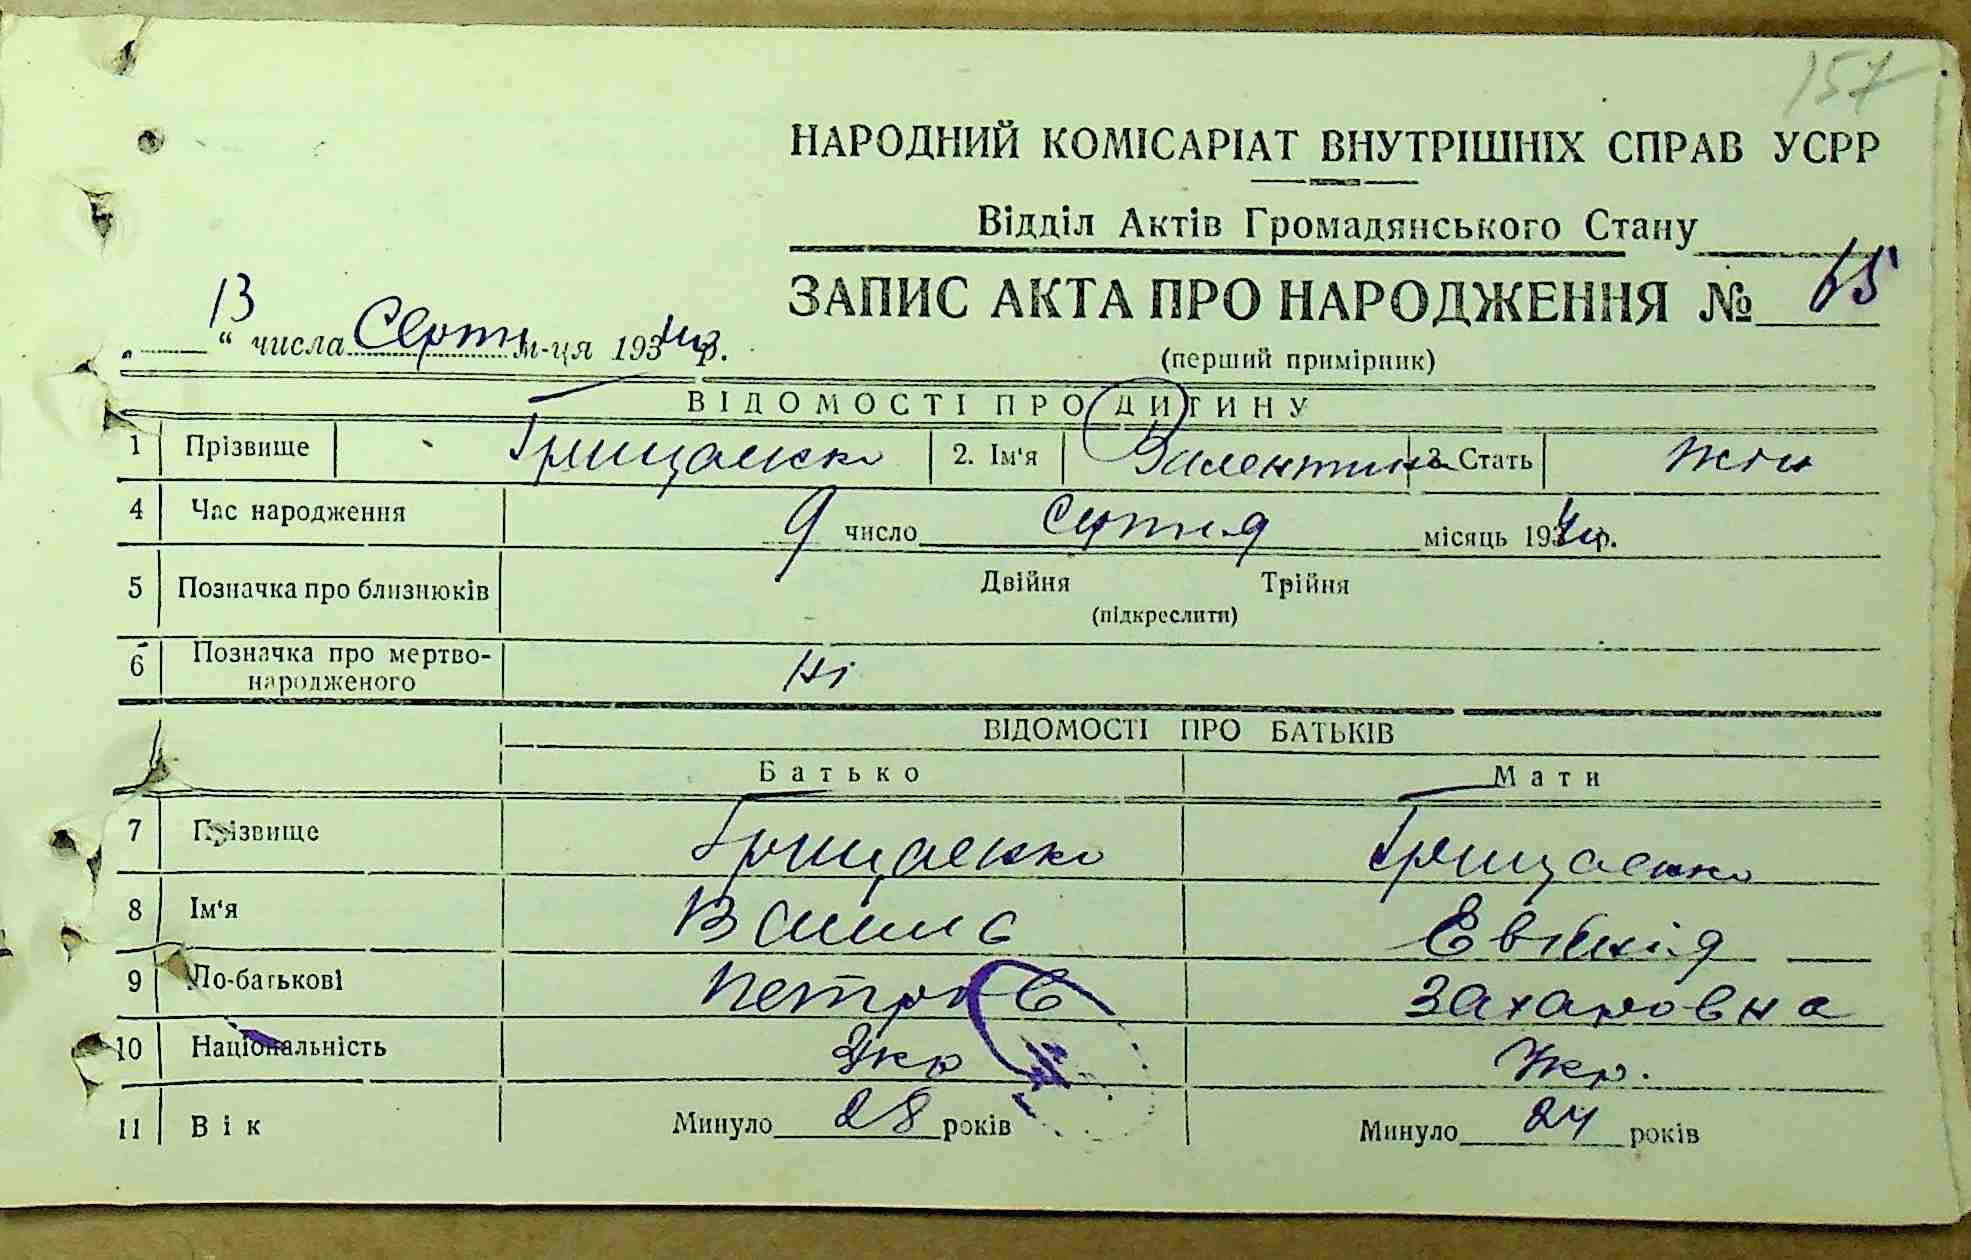 157
НАРОДНИЙ КОМІСАРІАТ ВНУТРІШНІХ СПРАВ УСРР
Відділ Актів Громадянського Стану
ЗАПИС АКТА ПРО НАРОДЖЕННЯ № 65
„13“ числа Серпн м-ця 193 р.
(перший примірник)
ВІДОМОСТІ ПРО ДИТИНУ
1 Прізвище Грищаенко 2. Ім'я Валентина 3. Стать жін
4 Час народження 9 число Серпня місяць 193 р.
5 Позначка про близнюків Двійня Трійня
(підкреслити)
6 Позначка про мертво-
народженого Ні
ВІДОМОСТІ ПРО БАТЬКІВ
Батько Мати
7 Прізвище Грищаенко Грищаенко
8 Ім'я
9 По-батькові Петров Захаровна
10 Національність Укр Укр.
11 Вік Минуло 28 років Минуло 24 років